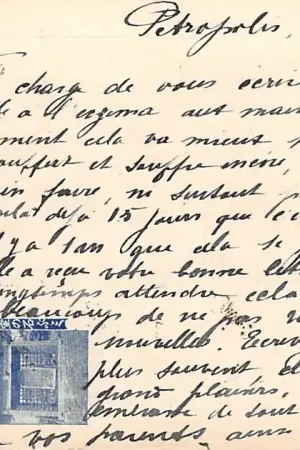 Petropolis,
charge de vous écri
a a l'eczema aux mai
ment cela va mieux
ouffert et souffre encore,
rien faire, ni surtout
déjà 15 jours que l'é
y a 1 an que cela se
a reçu votre bonne let
longtemps attendre cela
beaucoup de ne pas
nouvelles. Ecrive
plus souvent, c
grand plaisir,
embrasse de tout
vos parents, ains